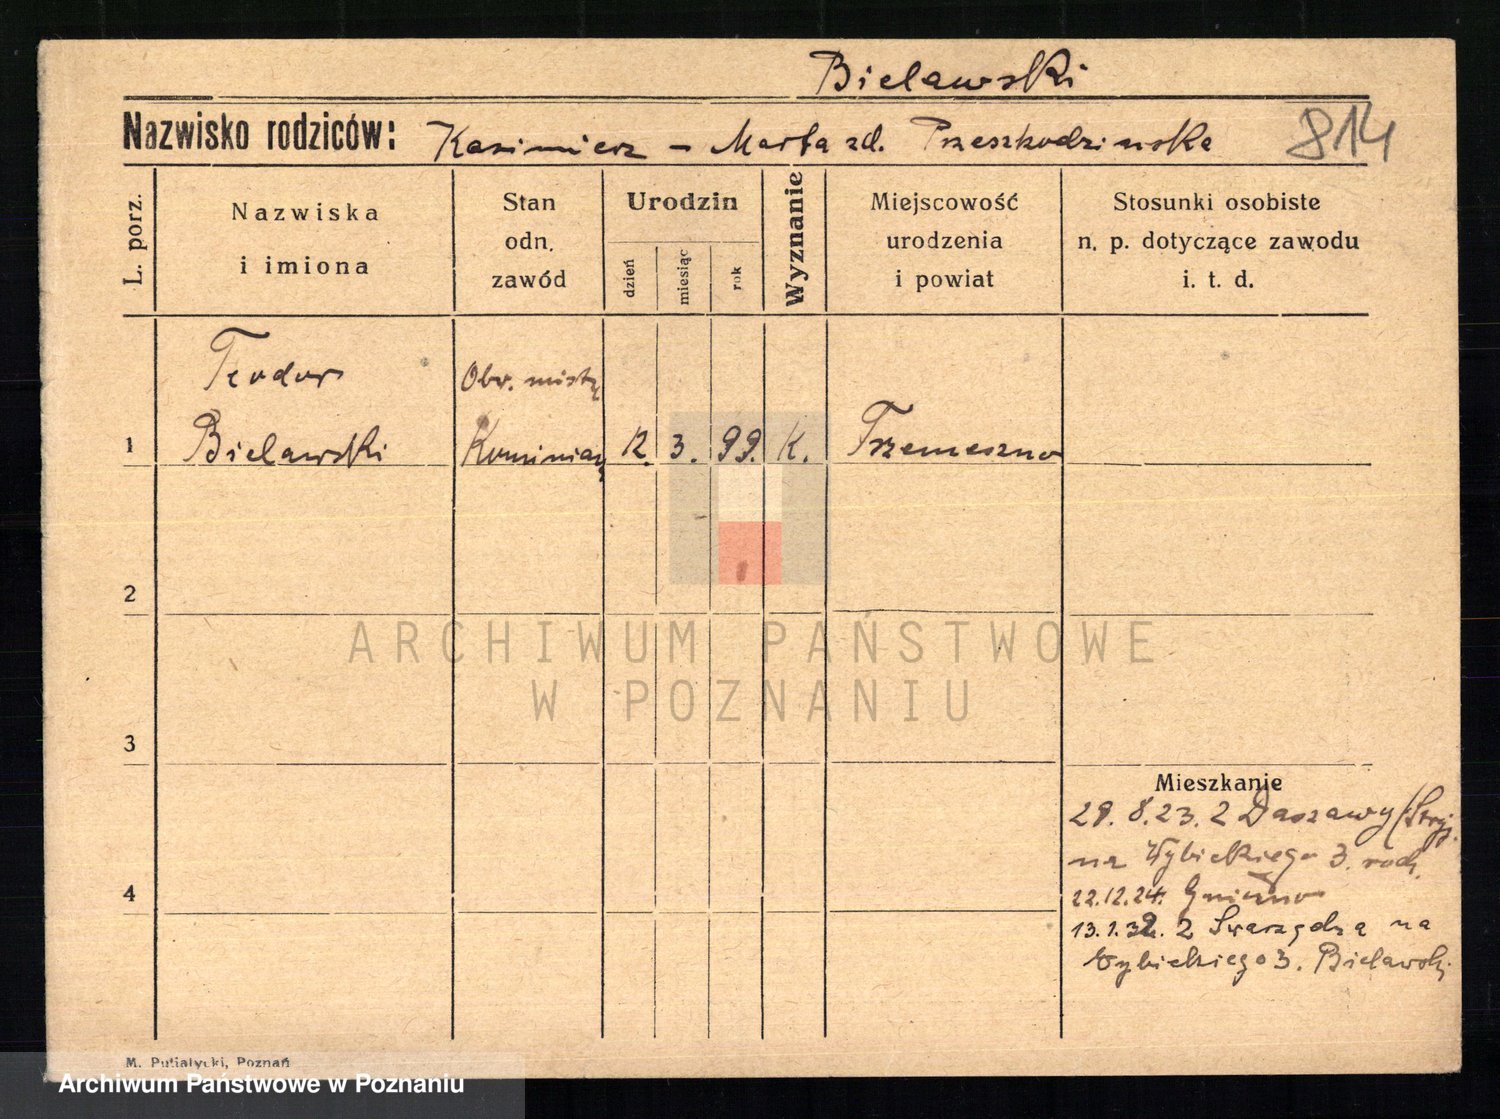 Bielawski
Nazwisko rodziców: Kazimierz – Marta zd. Przeszkodzinska 814
L. porz.
Nazwiska
i imiona
Stan
odn.
zawód
Urodzin
dzień
miesiąc
rok
Wyznanie
Miejscowość
urodzenia
i powiat
Stosunki osobiste
n. p. dotyczące zawodu
i. t. d.
Teodor
Obw. mistrz
1 Bielawski Kominiarz 12. 3. 99. K. Trzemeszno
2
3
4
Mieszkanie
29. 8. 23. z Daszawy (Stryj.
na Wybickiego 3. rodz.
22.12.24. Gniezno
13. 1. 32. z Swarzędza na
Wybickiego 3. Bielawski
ARCHIWUM PAŃSTWOWE
W POZNANIU
M. Putiatycki, Poznań
Archiwum Państwowe w Poznaniu